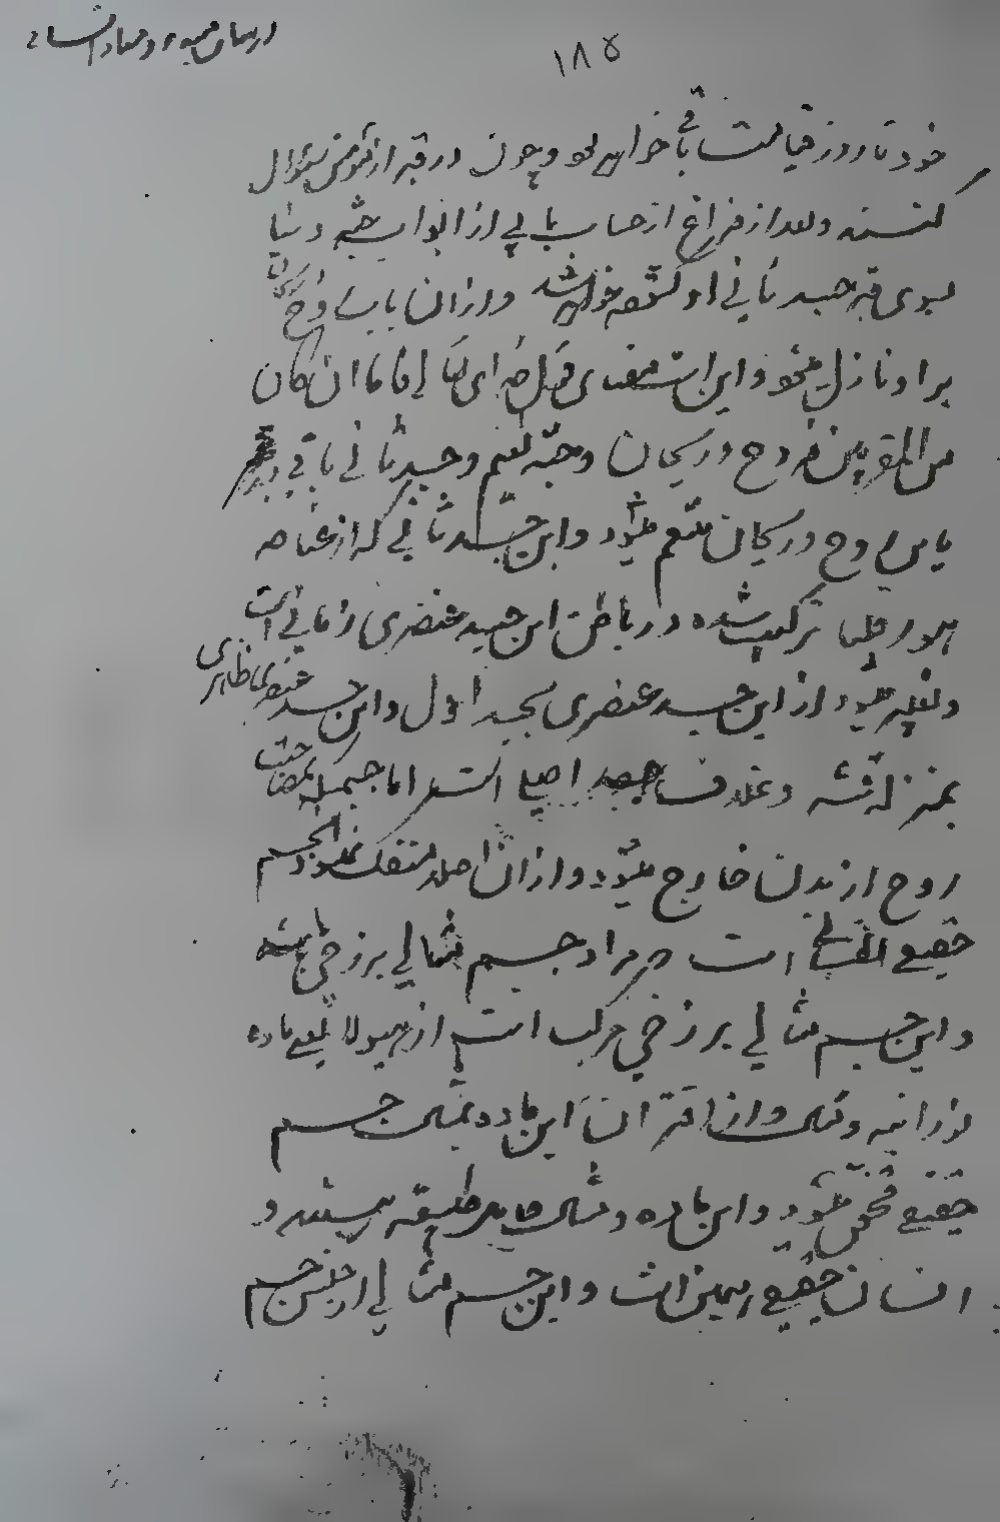 در بیان مبدء و معاد انسان
۱۸۵
خود تا روز قیامت باقی خواهد بود و چون در قبر از مؤمن سؤال
کنند و بعد از فراغ از حساب بابی از ابواب جنه دنیا
بسوی قبر جسد ثانی او گشوده خواهد شد و از آن باب روح
بر او نازل میشود و این است معنی قول خدای تعالی فاما ان کان
من المقربین فروح و ریحان و جنة نعیم و جسد ثانی باقی در قبر
باین روح و ریحان متنعم میشود و این جسد ثانی که از عناصر
هورقلیا ترکیب شده در باطن این جسد عنصری زمانی است
و تعبیر میشود از این جسد عنصری بجسد اول و این جسد عنصری ظاهری
بمنزله قشر و غلاف جسد اصلی است اما جسمی که بمصاحبت
روح از بدن خارج میشود و از آن اصلا منفک نمیشود جسم
حقیقی است و مراد جسم مثالی برزخی باشد
و این جسم مثالی برزخی مرکب است از هیولا یعنی ماده
نورانیه و مثال و از اقتران این ماده بمثال جسم
حقیقی متحقق میشود و این ماده و مثال طبیعة هستند و
انسان حقیقی همین است و این جسم مثالی از جنس جسم